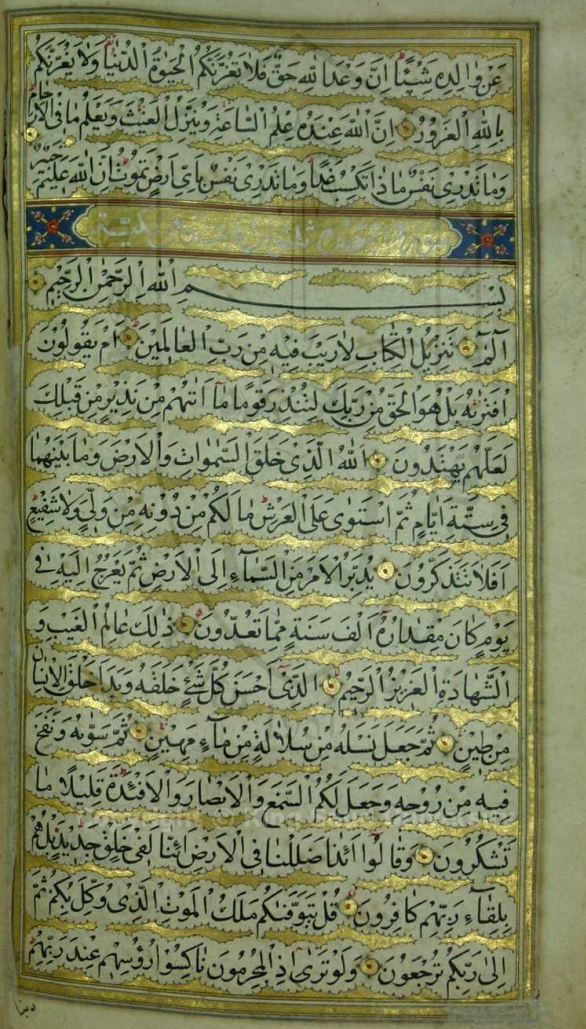 عَنْ وَالِدِهِ شَيْئًا اِنَّ وَعْدَ اللهِ حَقٌّ فَلَا تَغُرَّنَّكُمُ الْحَيٰوةُ الدُّنْيَا وَلَا يَغُرَّنَّكُمْ
بِاللهِ الْغَرُورُ اِنَّ اللهَ عِنْدَهُ عِلْمُ السَّاعَةِ وَيُنَزِّلُ الْغَيْثَ وَيَعْلَمُ مَا فِى الْاَرْحَامِ
وَمَا تَدْرِى نَفْسٌ مَاذَا تَكْسِبُ غَدًا وَمَا تَدْرِى نَفْسٌ بِاَىِّ اَرْضٍ تَمُوتُ اِنَّ اللهَ عَلِيمٌ خَبِيرٌ
بِسْمِ اللهِ الرَّحْمٰنِ الرَّحِيمِ
الٓمٓ تَنْزِيلُ الْكِتَابِ لَا رَيْبَ فِيهِ مِنْ رَبِّ الْعَالَمِينَ اَمْ يَقُولُونَ
افْتَرٰىهُ بَلْ هُوَ الْحَقُّ مِنْ رَبِّكَ لِتُنْذِرَ قَوْمًا مَا اَتٰىهُمْ مِنْ نَذِيرٍ مِنْ قَبْلِكَ
لَعَلَّهُمْ يَهْتَدُونَ اَللهُ الَّذِى خَلَقَ السَّمٰوَاتِ وَالْاَرْضَ وَمَا بَيْنَهُمَا
فِى سِتَّةِ اَيَّامٍ ثُمَّ اسْتَوٰى عَلَى الْعَرْشِ مَا لَكُمْ مِنْ دُونِهِ مِنْ وَلِىٍّ وَلَا شَفِيعٍ
اَفَلَا تَتَذَكَّرُونَ يُدَبِّرُ الْاَمْرَ مِنَ السَّمَاءِ اِلَى الْاَرْضِ ثُمَّ يَعْرُجُ اِلَيْهِ فِى
يَوْمٍ كَانَ مِقْدَارُهُ اَلْفَ سَنَةٍ مِمَّا تَعُدُّونَ ذٰلِكَ عَالِمُ الْغَيْبِ وَ
الشَّهَادَةِ الْعَزِيزُ الرَّحِيمُ الَّذِى اَحْسَنَ كُلَّ شَىْءٍ خَلَقَهُ وَبَدَاَ خَلْقَ الْاِنْسَانِ
مِنْ طِينٍ ثُمَّ جَعَلَ نَسْلَهُ مِنْ سُلَالَةٍ مِنْ مَاءٍ مَهِينٍ ثُمَّ سَوّٰىهُ وَنَفَخَ
فِيهِ مِنْ رُوحِهِ وَجَعَلَ لَكُمُ السَّمْعَ وَالْاَبْصَارَ وَالْاَفْئِدَةَ قَلِيلًا مَا
تَشْكُرُونَ وَقَالُوا اَئِذَا ضَلَلْنَا فِى الْاَرْضِ اَئِنَّا لَفِى خَلْقٍ جَدِيدٍ بَلْ هُمْ
بِلِقَاءِ رَبِّهِمْ كَافِرُونَ قُلْ يَتَوَفّٰىكُمْ مَلَكُ الْمَوْتِ الَّذِى وُكِّلَ بِكُمْ ثُمَّ
اِلٰى رَبِّكُمْ تُرْجَعُونَ وَلَوْ تَرٰى اِذِ الْمُجْرِمُونَ نَاكِسُوا رُؤُسِهِمْ عِنْدَ رَبِّهِمْ
ربنا